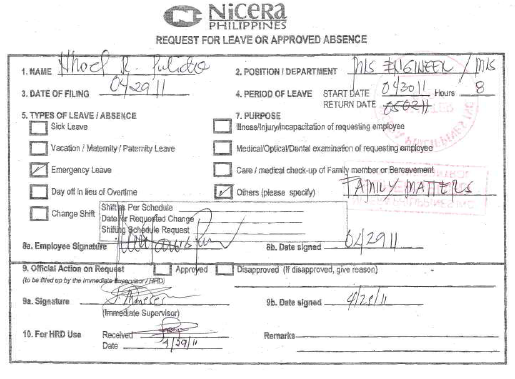 NICERA
PHILIPPINES
REQUEST FOR LEAVE OR APPROVED ABSENCE
1. NAME 2. POSITION / DEPARTMENT MIS ENGINEER / MIS
3. DATE OF FILING 042911 4. PERIOD OF LEAVE START DATE 043011 Hours 8
RETURN DATE 050211
5. TYPES OF LEAVE / ABSENCE 7. PURPOSE
Sick Leave Illness/Injury/Incapacitation of requesting employee
Vacation / Maternity / Paternity Leave Medical/Optical/Dental examination of requesting employee
Emergency Leave Care / medical check-up of Family member or Bereavement
Day off in lieu of Overtime Others (please specify) FAMILY MATTERS
Change Shift Shift as Per Schedule
Date for Requested Change
Shifting Schedule Request
8a. Employee Signature 8b. Date signed 042911
9. Official Action on Request Approved Disapproved (If disapproved, give reason)
(to be filled up by the Immediate Supervisor / HRD)
9a. Signature 9b. Date signed 4/29/11
(Immediate Supervisor)
10. For HRD Use Received Remarks
Date 4/29/11